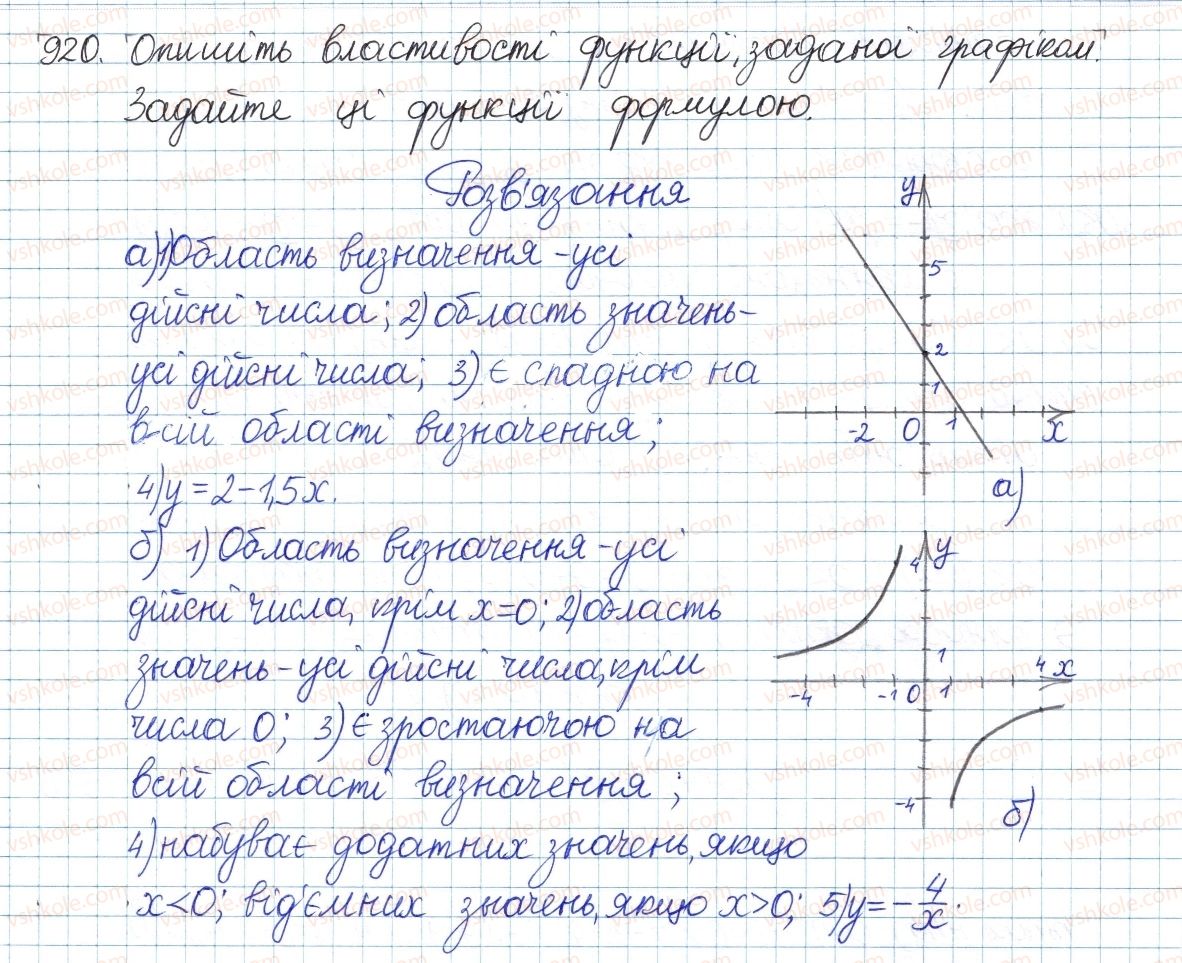 920. Опишіть властивості функції, заданої графіком.
Задайте ці функції формулою.
Розв'язання
а) 1) Область визначення - усі
дійсні числа; 2) область значень -
усі дійсні числа; 3) є спадною на
всій області визначення;
4) y = 2 - 1,5x.
y
5
2
1
-2 0 1 x
а)
б) 1) Область визначення - усі
дійсні числа, крім x=0; 2) область
значень - усі дійсні числа, крім
числа 0; 3) є зростаючою на
всій області визначення;
4) набуває додатних значень, якщо
x<0; від'ємних значень, якщо x>0; 5) y = -4/x.
4 y
1 4 x
-4 -1 0 1
-4
б)